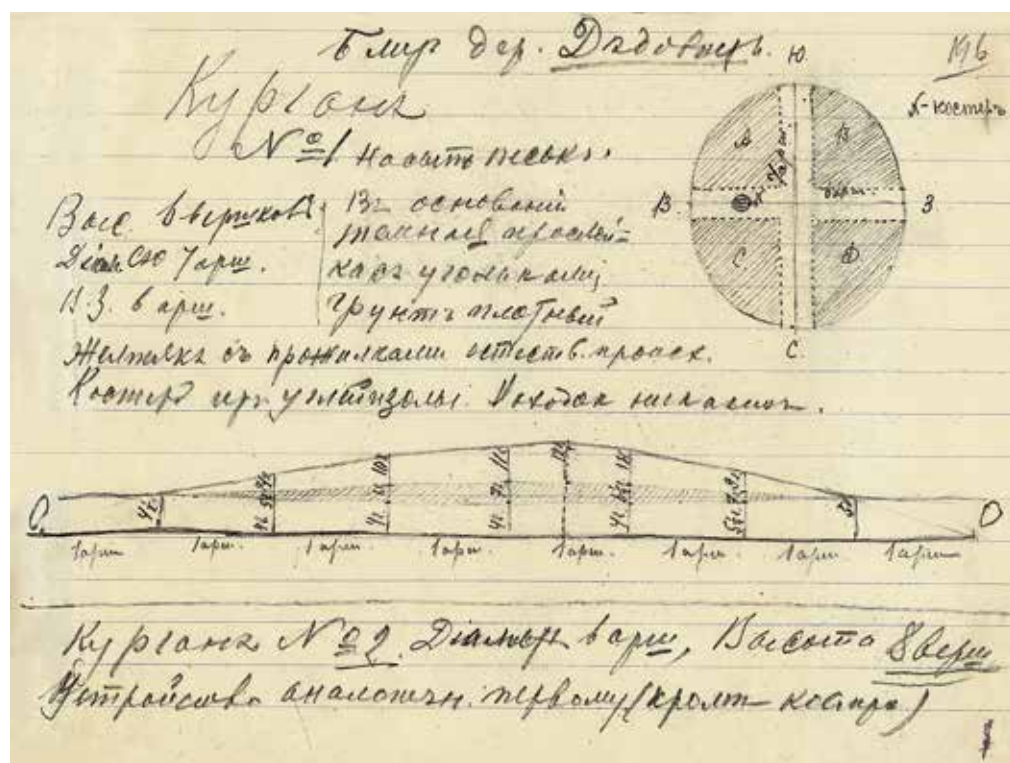 Близ дер. Дѣдовичъ.
Курганъ
№ 1 Насыпь песокъ.
Выс. 6 вершковъ
Діам СЮ 7 арш.
В.З. 6 арш.
Въ основаніи
темная прослой-
ка съ угольками,
грунтъ плотный
Желтякъ съ прожилками естеств. происх.
Костеръ изъ угля и золы. Находокъ никакихъ.
Ю
В.
З
С.
А
В
С
D
6 арш.
х-костеръ
О
О
1 арш 1 арш. 1 арш. 1 арш. 1 арш. 1 арш. 1 арш. 1 арш
Курганъ № 2. Діаметръ 6 арш, Высота 8 верш
Устройство аналогичн. первому (кромѣ костра)